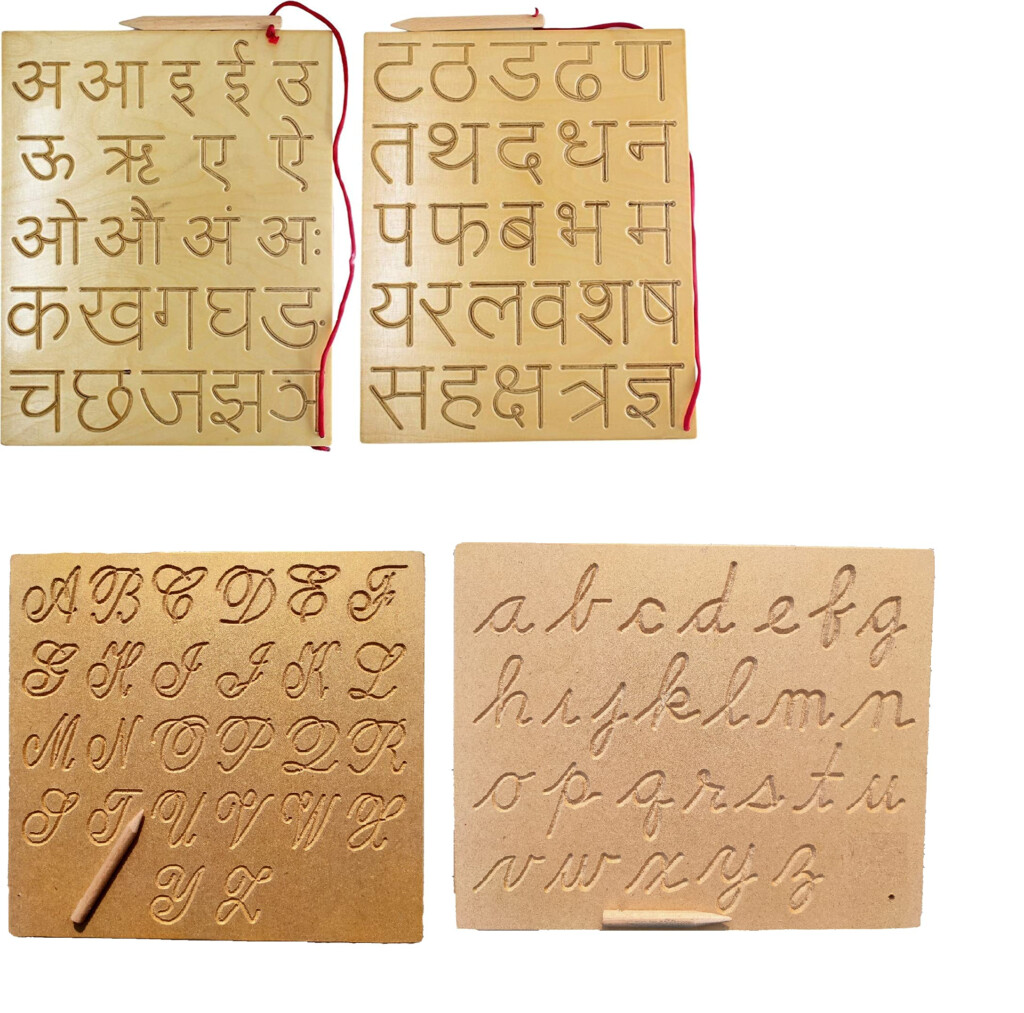 अ आ इ ई उ
ऊ ऋ ए ऐ
ओ औ अं अः
क ख ग घ ङ
च छ ज झ ञ
ट ठ ड ढ ण
त थ द ध न
प फ ब भ म
य र ल व श ष
स ह क्ष त्र ज्ञ
A B C D E F
G H I J K L
M N O P Q R
S T U V W X
Y Z
a b c d e f g
h i j k l m n
o p q r s t u
v w x y z